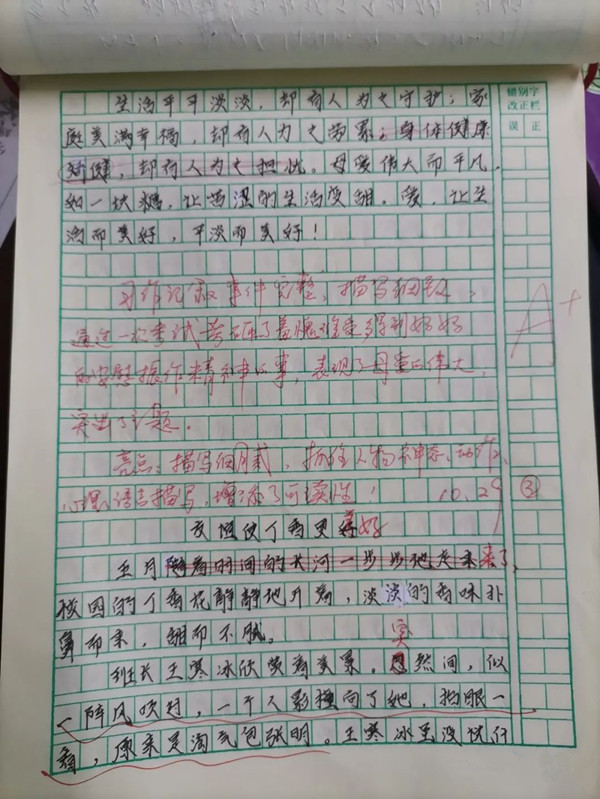 错别字
改正栏
误 正
生活平平淡淡，却有人为之守护；家
庭美满幸福，却有人为之劳累；身体健康
却有人为之担忧。母爱伟大而平凡，
如一块糖，让苦涩的生活变甜。爱，让生
活而美好，平淡而美好！
习作记叙事件完整，描写细致，
通过一次考试考砸了羞愧难受得到妈妈
的安慰振作精神的事，表现了母爱的伟大，
突出了主题。
A+
亮点：描写细腻，抓住人物神态、动作、
心理、语言描写，增添了可读性！ 10.29
31
友谊使丁香更好
五月随着时间的长河一步步地走来了，
校园的丁香花静静地开着，淡淡的香味扑
鼻而来，甜而不腻。
突
班长王寒冰欣赏着美景。忽然间，似
一阵风吹过，一个人影撞向了她，
原来是淘气包张明。王寒冰